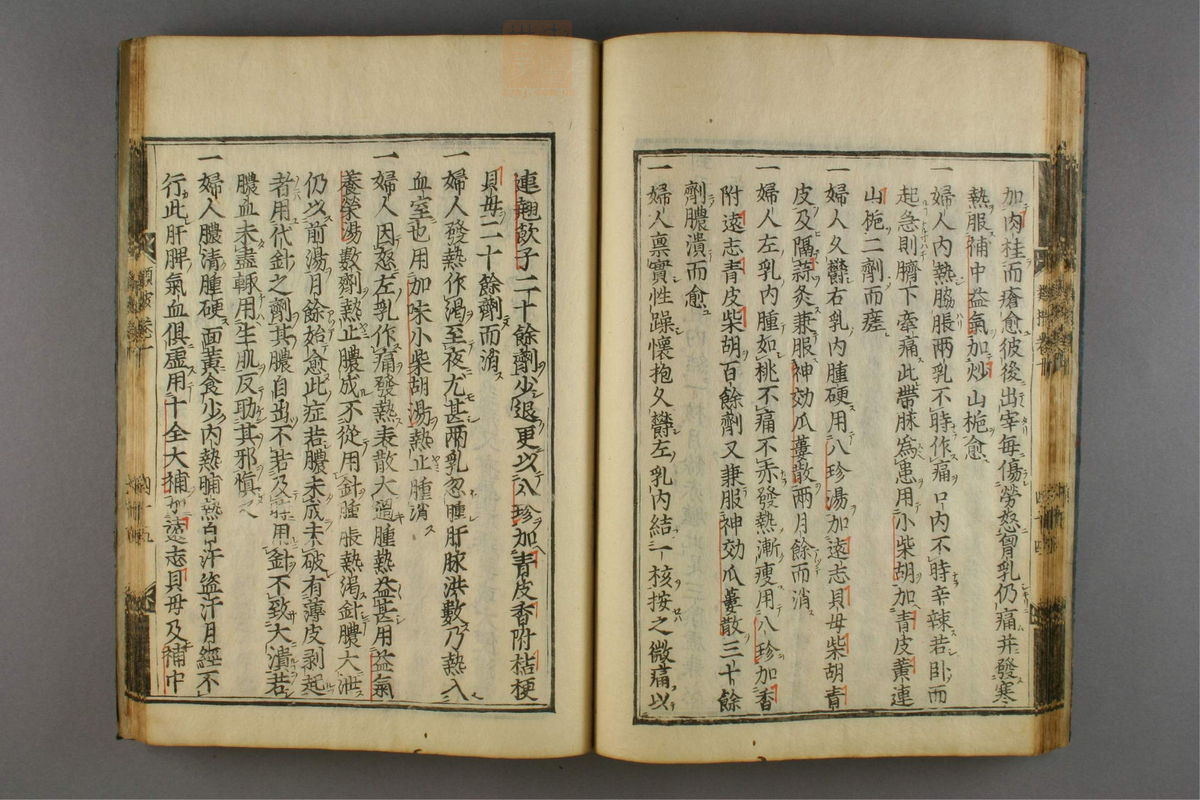 加肉桂而瘡愈彼後出宰每傷勞怒胷乳仍痛并發寒
熱服補中益氣加炒山梔愈
一婦人內熱脇脹兩乳不時作痛口內不時辛辣若臥而
起急則臍下牽痛此帶脉為患用小柴胡加青皮黃連
山梔二劑而瘥
一婦人久鬱右乳內腫硬用八珍湯加遠志貝母柴胡青
皮及隔蒜灸兼服神効瓜蔞散兩月餘而消
一婦人左乳內腫如桃不痛不赤發熱漸瘦用八珍加香
附遠志青皮柴胡百餘劑又兼服神効瓜蔞散三十餘
劑膿潰而愈
一婦人禀實性躁懷抱久鬱左乳內結一核按之微痛以
連翹飲子二十餘劑少退更以八珍加青皮香附桔梗
貝母二十餘劑而消
一婦人發熱作渴至夜尤甚兩乳忽腫肝脉洪數乃熱入
血室也用加味小柴胡湯熱止腫消
一婦人因怒左乳作痛發熱表散太過腫熱益甚用益氣
養榮湯數劑熱止膿成不從用針腫脹熱渴針膿大泄
仍以前湯月餘始愈此症若膿未成未破有薄皮剥起
者用代針之劑其膿自出不若及時用針不致大潰若
膿血未盡輙用生肌反助其邪慎之
一婦人膿清腫硬面黃食少內熱晡熱自汗盜汗月經不
行此肝脾氣血俱虛用十全大補加遠志貝母及補中
四十九